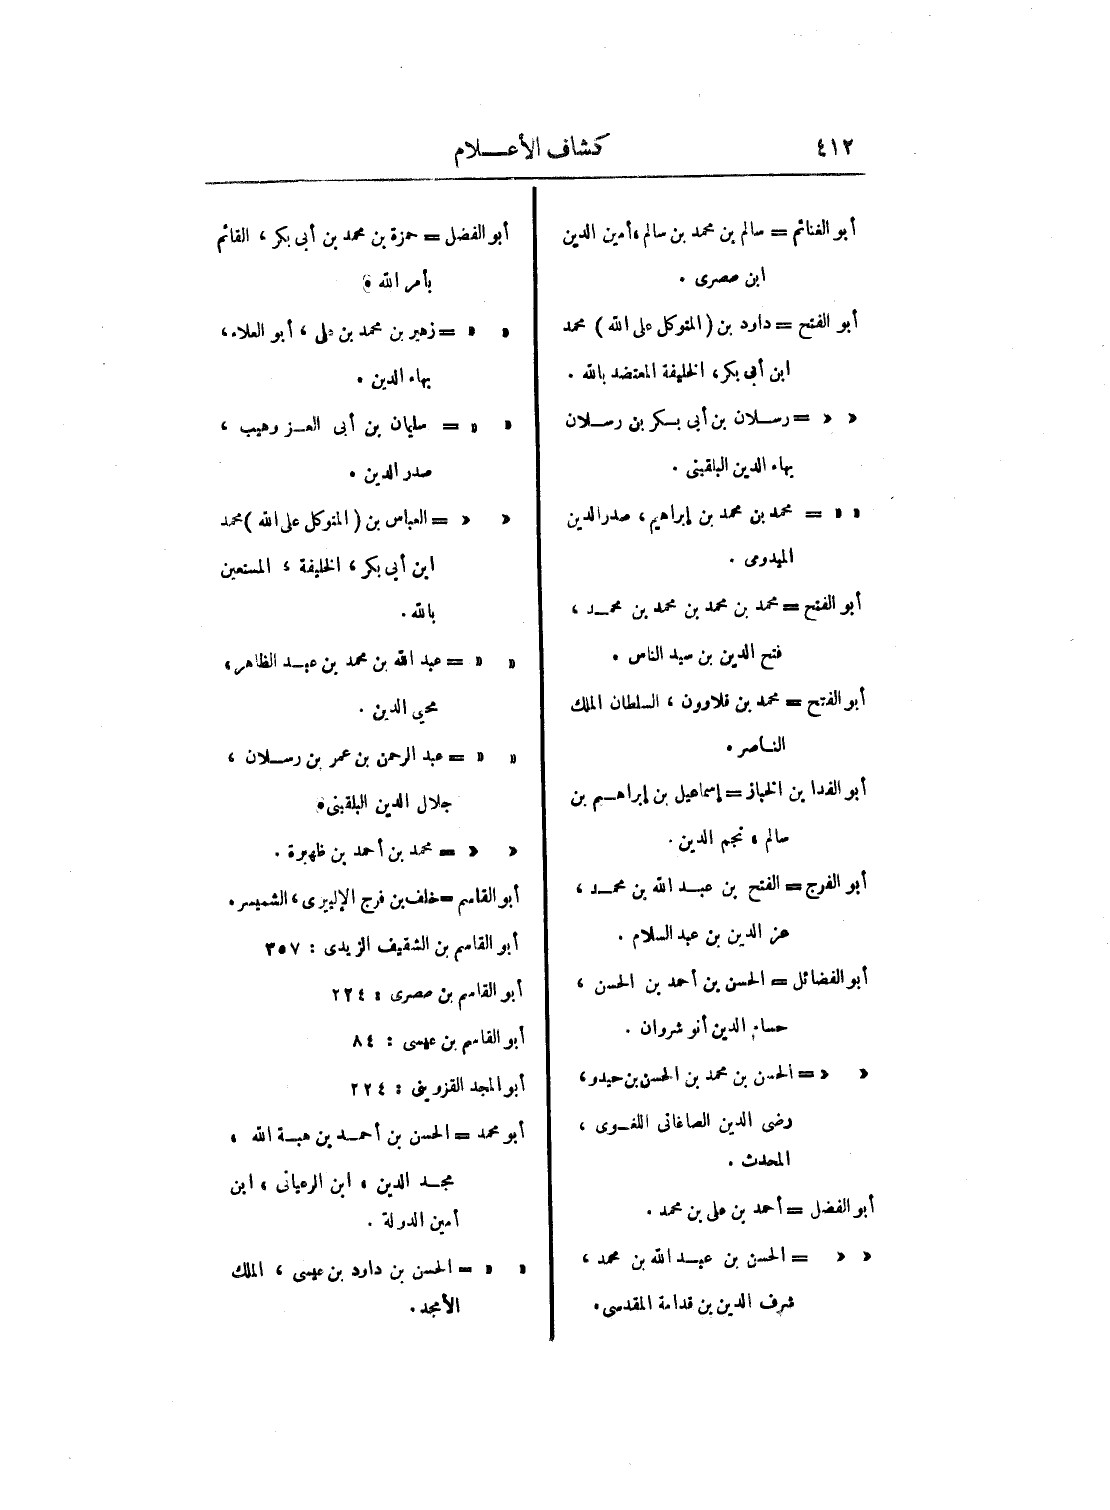 ٤١٢
كشاف الأعـــلام
أبو الغنائم = سالم بن محمد بن سالم ، أمين الدين
ابن صصرى .
أبو الفتح = داود بن ( المتوكل على الله ) محمد
ابن أبى بكر ، الخليفة المعتضد بالله .
» » = رســلان بن أبى بـكر بن رســلان
بهاء الدين البلقينى .
» » = محمد بن محمد بن إبراهيم ، صدر الدين
الميدومى .
أبو الفتح = محمد بن محمد بن محمد بن محمـد ،
فتح الدين بن سيد الناس .
أبو الفتح = محمد بن قلاوون ، السلطان الملك
النـاصر .
أبو الفدا بن الخباز = إسماعيل بن إبراهـيم بن
سالم ، نجم الدين .
أبو الفرج = الفتح بن عبـد الله بن محمـد ،
عز الدين بن عبد السلام .
أبو الفضائل = الحسن بن أحمد بن الحسن ،
حسام الدين أنو شروان .
» » = الحسن بن محمد بن الحسن بن حيدو ،
رضى الدين الصاغانى اللغـوى ،
المحدث .
أبو الفضل = أحمد بن على بن محمد .
» » = الحسن بن عبـد الله بن محمد ،
شرف الدين بن قدامة المقدسى .
أبو الفضل = حمزة بن محمد بن أبى بكر ، القائم
بأمر الله .
» » = زهير بن محمد بن على ، أبو العلاء ،
بهاء الدين .
» » = سليمان بن أبى العـز وهيب ،
صدر الدين .
» » = العباس بن ( المتوكل على الله ) محمد
ابن أبى بكر ، الخليفة ، المستعين
بالله .
» » = عبد الله بن محمد بن عبـد الظاهر ،
محيى الدين .
» » = عبد الرحمن بن عمر بن رسـلان ،
جلال الدين البلقينى .
» » = محمد بن أحمد بن ظهيرة .
أبو القاسم = خلف بن فرج الإلبيرى ، الشميسر .
أبو القاسم بن الشقيف الزيدى : ٣٥٧
أبو القاسم بن صصرى : ٢٢٤
أبو القاسم بن عيسى : ٨٤
أبو المجد القزوينى : ٢٢٤
أبو محمد = الحسن بن أحمـد بن هبـة الله ،
مجـد الدين ، ابن الرعيانى ، ابن
أمين الدولة .
» » = الحسن بن داود بن عيسى ، الملك
الأمجد .